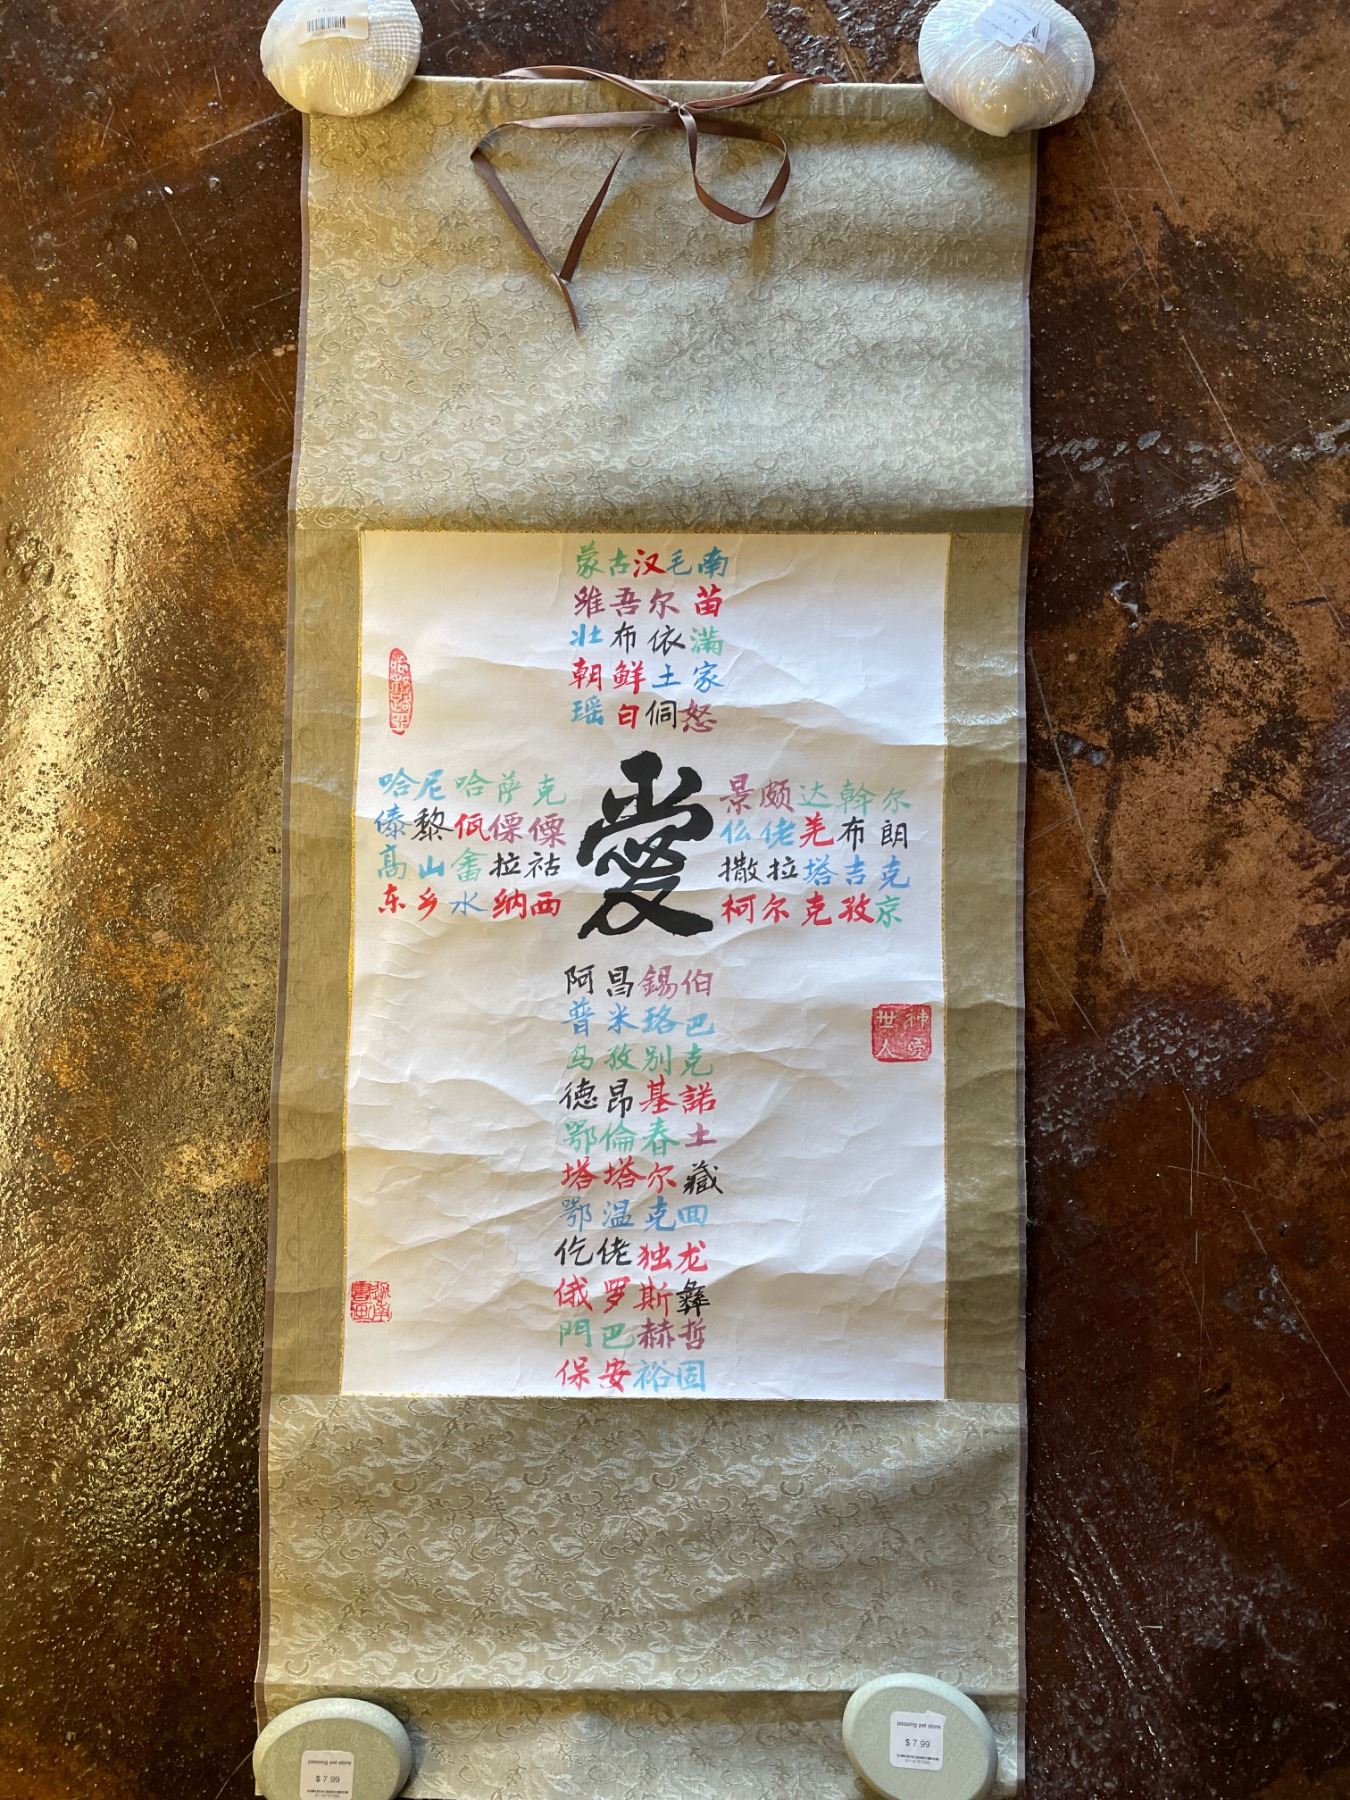 蒙古汉毛南
維吾尔苗
壮布依滿
朝鲜土家
瑶白侗怒
哈尼哈萨克
傣黎佤傈僳
高山畲拉祜
东乡水纳西
愛
景颇达斡尔
仫佬羌布朗
撒拉塔吉克
柯尔克孜京
阿昌錫伯
普米珞巴
乌孜別克
德昂基諾
鄂倫春土
塔塔尔藏
鄂温克回
仡佬独龙
俄罗斯彝
門巴赫哲
保安裕固
神愛
世人
passing pet store
$ 7.99
passing pet store
$ 7.99